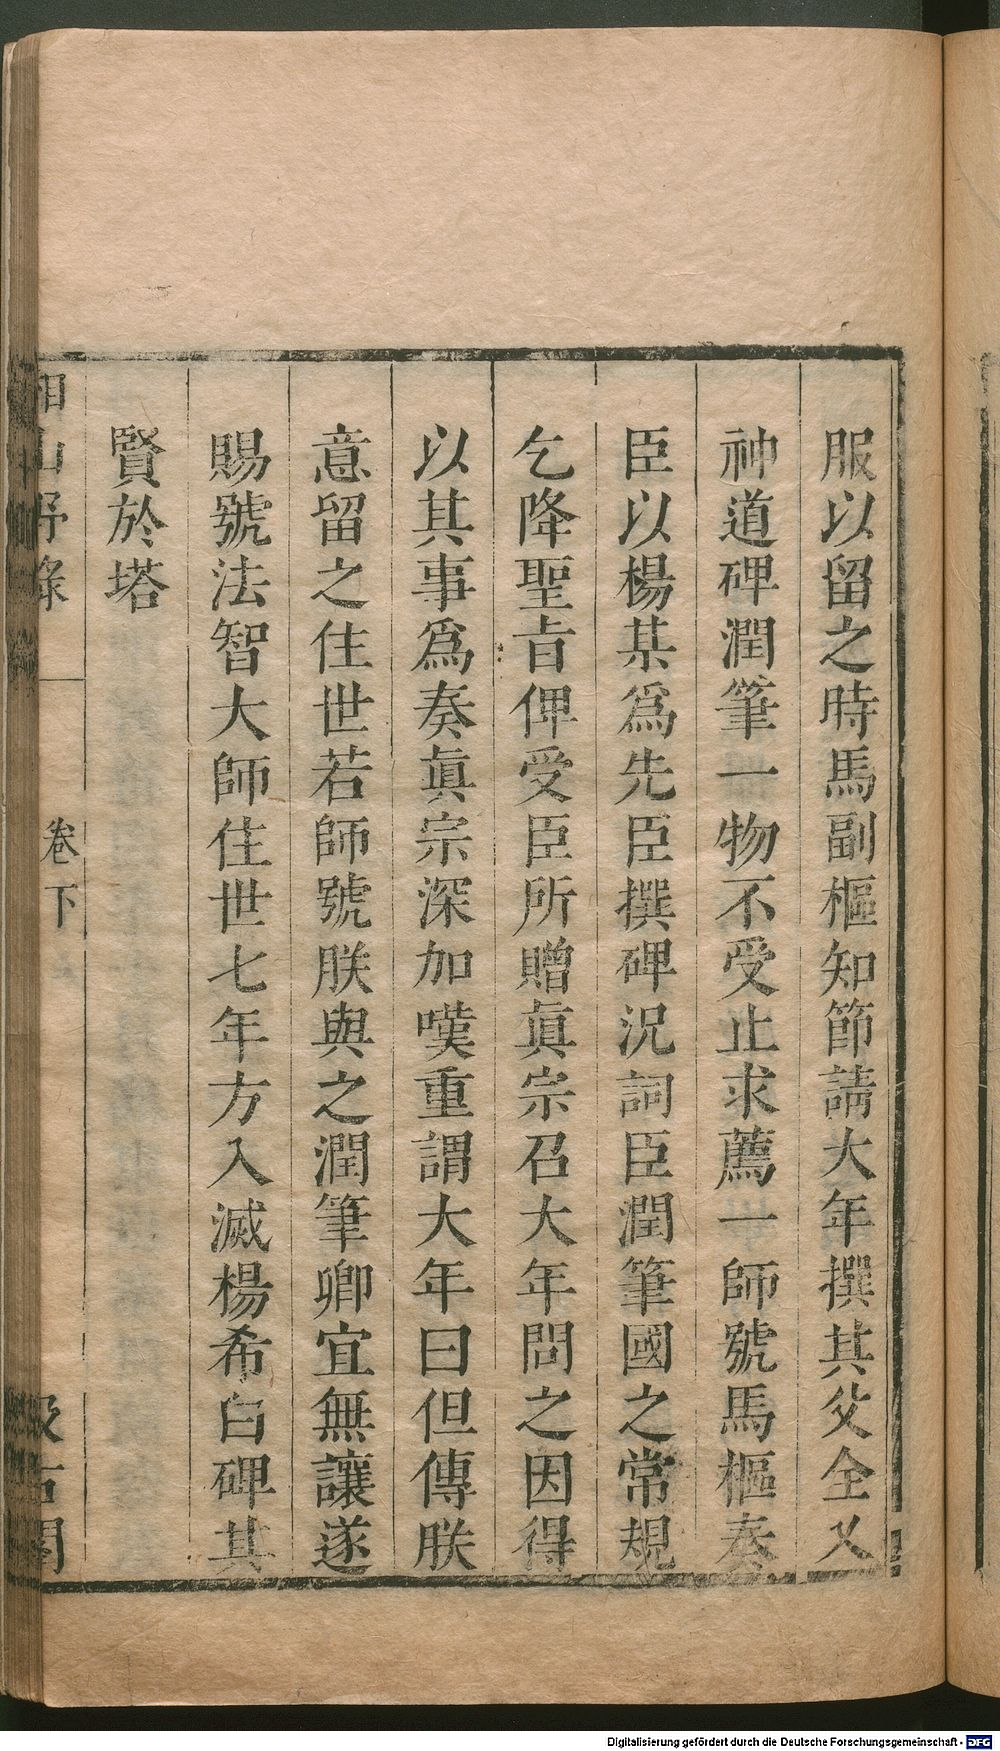 服以留之時馬副樞知節請大年撰其父全乂
神道碑潤筆一物不受止求薦一師號馬樞奏
臣以楊某爲先臣撰碑況詞臣潤筆國之常規
乞降聖旨俾受臣所贈眞宗召大年問之因得
以其事爲奏眞宗深加嘆重謂大年曰但傳朕
意留之住世若師號朕與之潤筆卿宜無讓遂
賜號法智大師住世七年方入滅楊希白碑其
賢於塔
湘山野錄 卷下 汲古閣
Digitalisierung gefördert durch die Deutsche Forschungsgemeinschaft - DFG